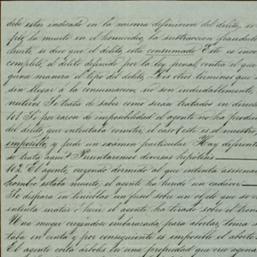 debe estar indicado en la misma definicion del delito, p.
plo la muerte en el homicidio, la substraccion fraudule
mente, se dice que el delito está consumado. Este es inco
completo, el delito definido por la ley penal, contra el que
guna manera el tipo de delito. En otros términos que s
den llegar á la consumacion, no son indudablemente,
nutivo. Se trata de saber como serán tratados en derecho
161. Si por razon de imposibilidad el agente no ha produc
del delito que intentaba cometer, el caso es el
imposible, y pide un examen particular. Hay diferente
de tratar Examinaremos diversas hipótesis
162. El agente, creyendo dormido al que intenta asesinar
hombre estaba muerto, el agente ha herido un cadáver.
Se dispara en tinieblas un fusil sobre un objeto que se
intenta matar ó herir, el agente ha tirado sobre el tron
Una muger creyéndose embarazada, para abortar, toma s
taba en cinta y por consiguiente es imposible el aborto
El agente corta árboles en una propiedad que cree agena